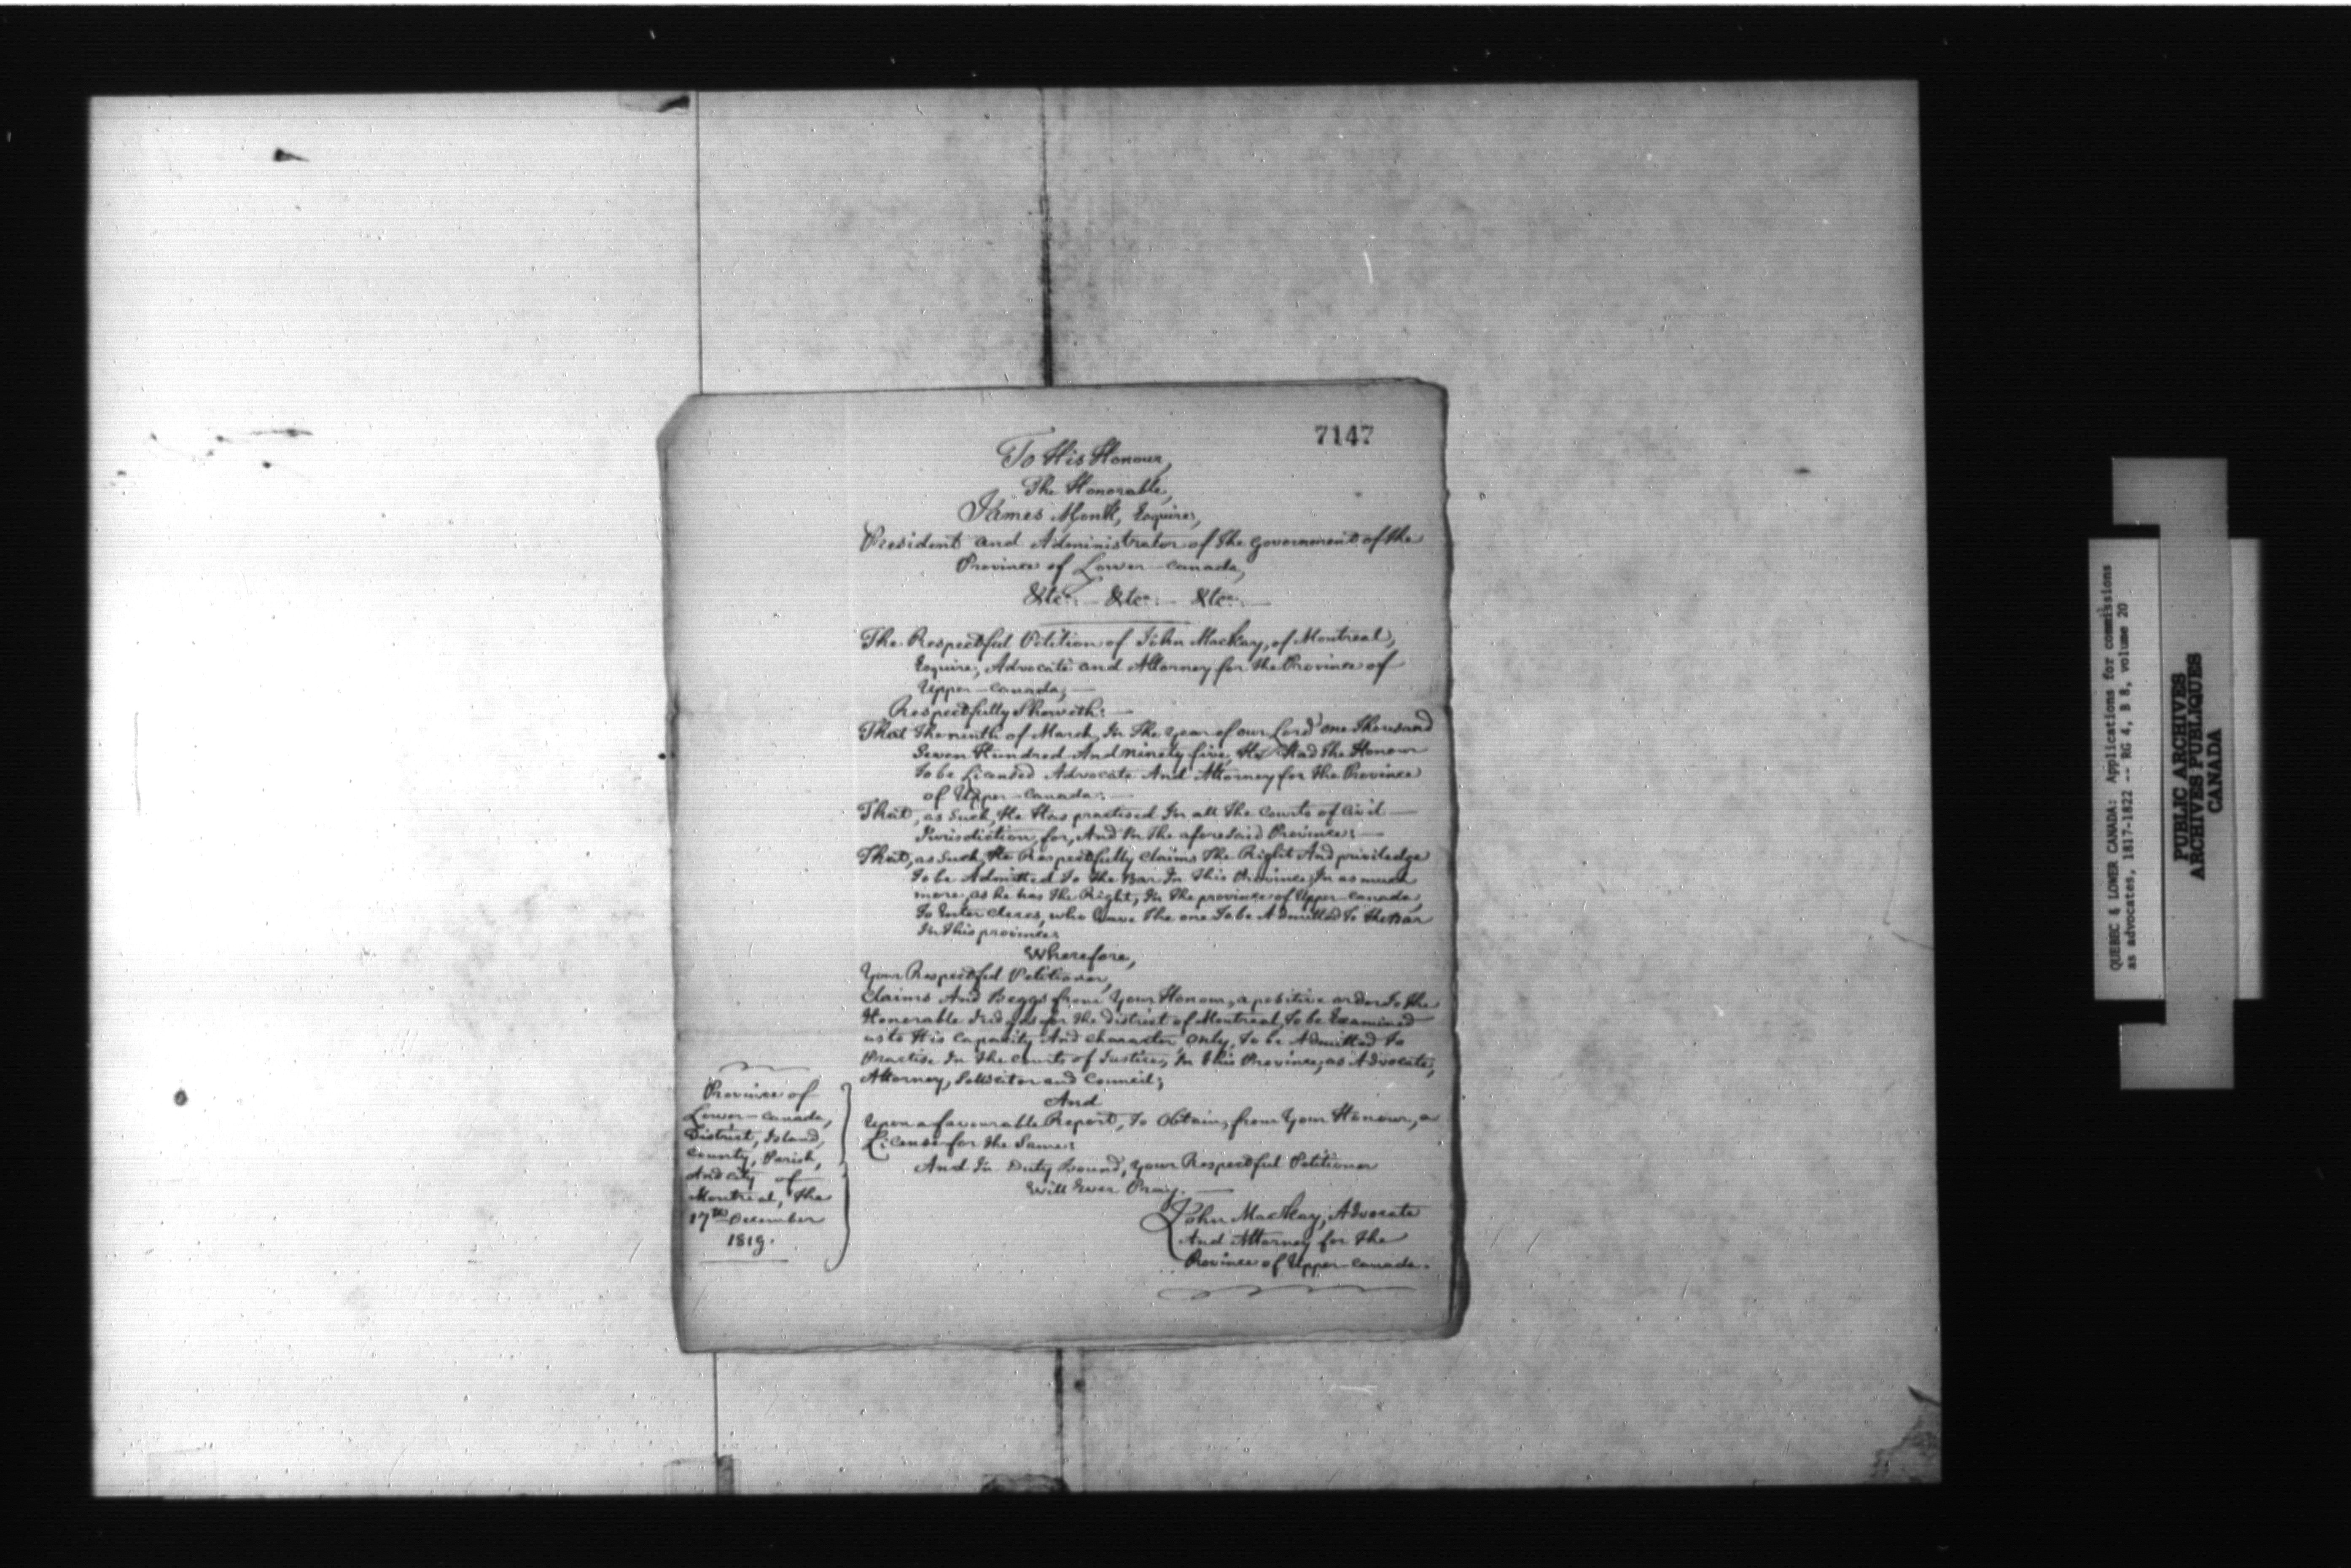 7147
To His Honour,
The Honorable,
James Monk, Esquire,
President and Administrator of the Government of the
Province of Lower-Canada,
&tca:— &tca:— &tca:—
The Respectful Petition of John MacKay, of Montreal,
Esquire, Advocate and Attorney for the Province of
Upper-Canada;—
Respectfully Sheweth:—
That The ninth of March, In The Year of our Lord one Thousand
Seven Hundred And ninety five, He Had The Honour
To be Licensed Advocate And Attorney for the Province
of Upper-Canada:—
That, as Such, He Has practised In all The Courts of Civil—
Jurisdiction, for, And In The aforesaid Province:—
That, as Such, He Respectfully Claims The Right And priviledge
To be Admitted To The Bar In This Province; In as much
more, as he has The Right, In The province of Upper-Canada,
To Enter Clercs, who have The one To be Admitted To The Bar
In This province:
Wherefore,
Your Respectful Petitioner,
Claims And Beggs from Your Honour, a positive order To the
Honorable Judges for the district of Montreal, To be Examined
as to His Capacity And Character, only, To be Admitted To
Practise In The Courts of Justice, In This Province, as Advocate,
Attorney, Sollicitor and Council;
And
Upon a favourable Report, To Obtain, from Your Honour, a
License for the Same:
And In Duty bound, your Respectful Petitioner
Will Ever Pray.—
John MacKay, Advocate
And Attorney for the
Province of Upper-Canada.
Province of
Lower-Canada,
District, Island,
County, Parish,
And City of
Montreal, the
17th December
1819.
QUEBEC & LOWER CANADA: Applications for commissions
as advocates, 1817-1822 -- RG 4, B 8, volume 20
PUBLIC ARCHIVES
ARCHIVES PUBLIQUES
CANADA